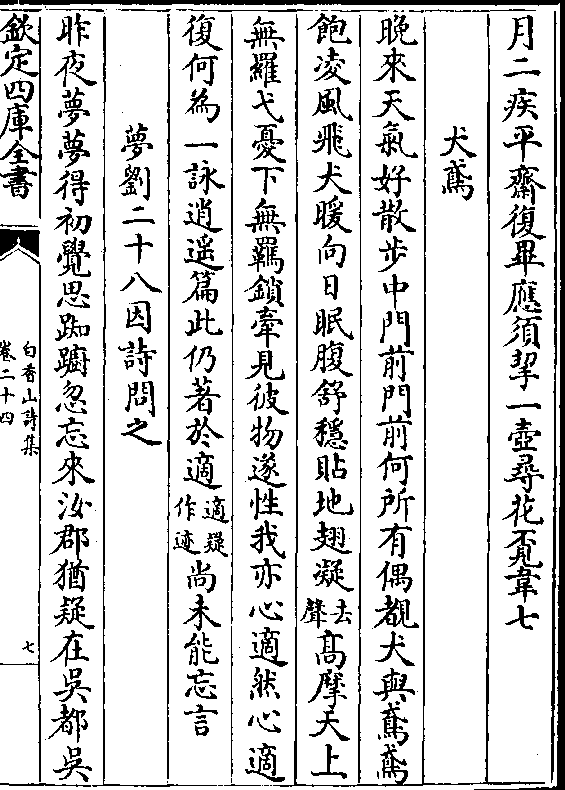 月二疾平齋復畢應須挈一壺尋花覓韋七
犬鳶
晚來天氣好散步中門前門前何所有偶覩犬與鳶鳶
飽凌風飛犬暖向日眠腹舒穩貼地翅凝去聲高摩天上
無羅弋憂下無羈鎖牽見彼物遂性我亦心適然心適
復何為一詠逍遥篇此仍著於適適疑作迹尚未能忘言
夢劉二十八因詩問之
昨夜夢夢得初覺思踟躕忽忘來汝郡猶疑在吳都吳
欽定四庫全書
白香山詩集
卷二十四
七